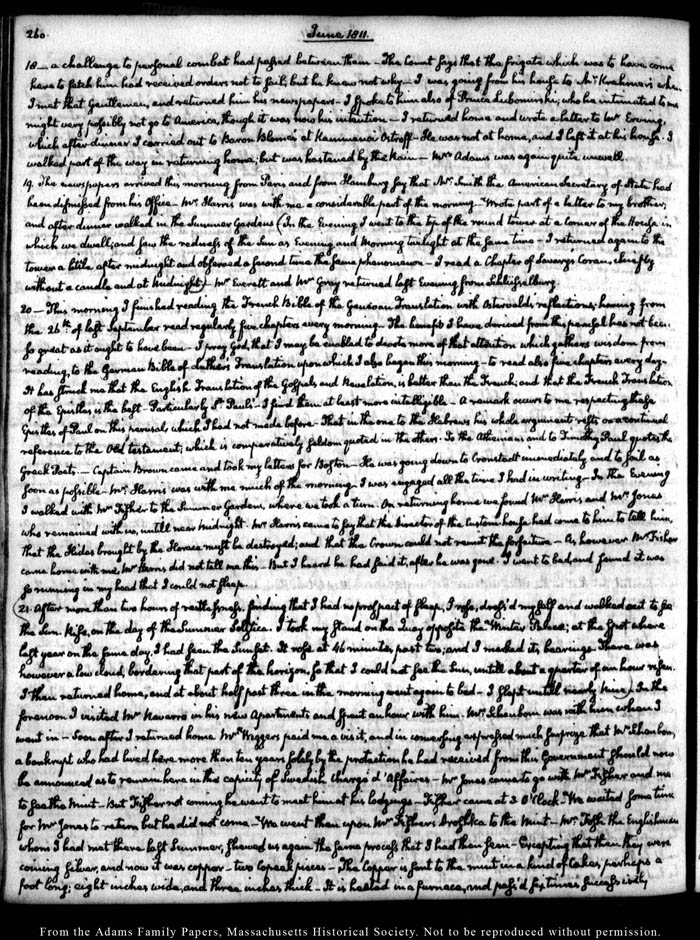 260.
June 1811.
18 — a challenge to personal combat had passed between them – The Count says that the frigate which was to have come
here to fetch him had received orders not to sail; but he knew not why – I was going from his house to Mr Krehmer's when
I met that Gentleman, and returned him his newspapers – I spoke to him also of Prince Lubomirski, who he intimated to me
might very possibly not go to America, though it was now his intention – I returned home and wrote a letter to Mr Ewing,
which after dinner I carried out to Baron Blome's at Kammenoi Ostroff – He was not at home, and I left it at his house. I
walked part of the way in returning home; but was hastened by the Rain – Mrs Adams was again quite unwell.
19. The newspapers arrived this morning from Paris and from Hamburg say that Mr Smith the American Secretary of State had
been dismissed from his Office – Mr Harris was with me a considerable part of the morning – Wrote part of a letter to my brother,
and after dinner walked in the Summer Gardens (In the Evening I went to the top of the round tower at a corner of the House in
which we dwell; and saw the redness of the Sun as Evening and Morning twilight at the same time – I returned again to the
tower a little after midnight and observed a second time the same phenomenon – I read a Chapter of Savary's Coran, chiefly
without a candle and at Midnight) Mr Everett and Mr Gray returned last Evening from Schlusselburg.
20 – This morning I finished reading the French Bible of the Genevan Translation with Ostervald's reflections; having from
the 26th of last September read regularly five chapters every morning – The benefit I have derived from this perusal has not been
so great as it ought to have been – I pray God, that I may be enabled to devote more of that attention which gathers wisdom from
reading, to the German Bible of Luther's Translation upon which I also began this morning – to read also five chapters every day–
It has struck me that the English Translation of the Gospels and Revelation, is better than the French; and that the French Translation
of the Epistles is the best – Particularly St Paul's – I find them at least more intelligible – A remark occurs to me respecting these
Epistles of Paul on this perusal, which I had not made before – That in the one to the Hebrews his whole argument rests on a continued
reference to the Old testament; which is comparatively seldom quoted in the others – To the Athenians and to Timothy Paul quotes the
Greek Poets – Captain Brown came and took my letters for Boston – He was going down to Cronstadt immediately and to sail as
soon as possible – Mr Harris was with me much of the morning – I was engaged all the time I had in writing – In the Evening
I walked with Mr Fisher to the Summer Gardens, where we took a turn. On returning home we found Mr Harris and Mr Jones
who remained with us, untill near midnight – Mr Harris came to say that the Director of the Custom house had come to him to tell him,
that the Hides brought by the Horace must be destroyed; and that the Crown could not remit the forfeiture – As however Mr Fisher
came home with me, Mr Harris did not tell me this – But I heard he had said it, after he was gone – I went to bed, and found it was
so running in my head that I could not sleep.
(21. After more than two hours of restlessness, finding that I had no prospect of sleep, I rose, dress'd myself and walked out to see
the Sun rise, on the day of the Summer Solstice. I took my stand on the Quay opposite the Winter Palace; at the spot where
last year on the same day, I had seen the Sunset. It rose at 46 minutes past two; and I marked its bearings – There was
however a low cloud, bordering that part of the horizon, so that I could not see the Sun, untill about a quarter of an hour risen.
I then returned home, and at about half past three in the morning went again to bed – I slept untill nearly Nine) In the
forenoon I visited Mr Navarro in his new Apartments and spent an hour with him. Mr Schenbom was with him when I
went in – Soon after I returned home Mr Wiggers paid me a visit, and in conversing expressed much surprize that Mr Schenbom,
a bankrupt who had lived here more than ten years solely by the protection he had received from this Government should now
be announced as to remain here in this capacity of Swedish Chargé d'Affaires – Mr Jones came to go with Mr Fisher and me
to see the Mint – But Fisher not coming he went to meet him at his lodgings – Fisher came at 3 O'Clock – We waited some time
for Mr Jones to return but he did not come – We went then upon Mr Fisher's droshka to the Mint – Mr the Englishman
whom I had met there last Summer, shewed us again the same process that I had then seen – Excepting that then they were
coining silver, and now it was copper – two Copeck pieces – The Copper is sent to the mint in a kind of Cakes, perhaps a
foot long; eight inches wide, and three inches thick – It is heated in a furnace, and pass'd six times successively
From the Adams Family Papers, Massachusetts Historical Society. Not to be reproduced without permission.